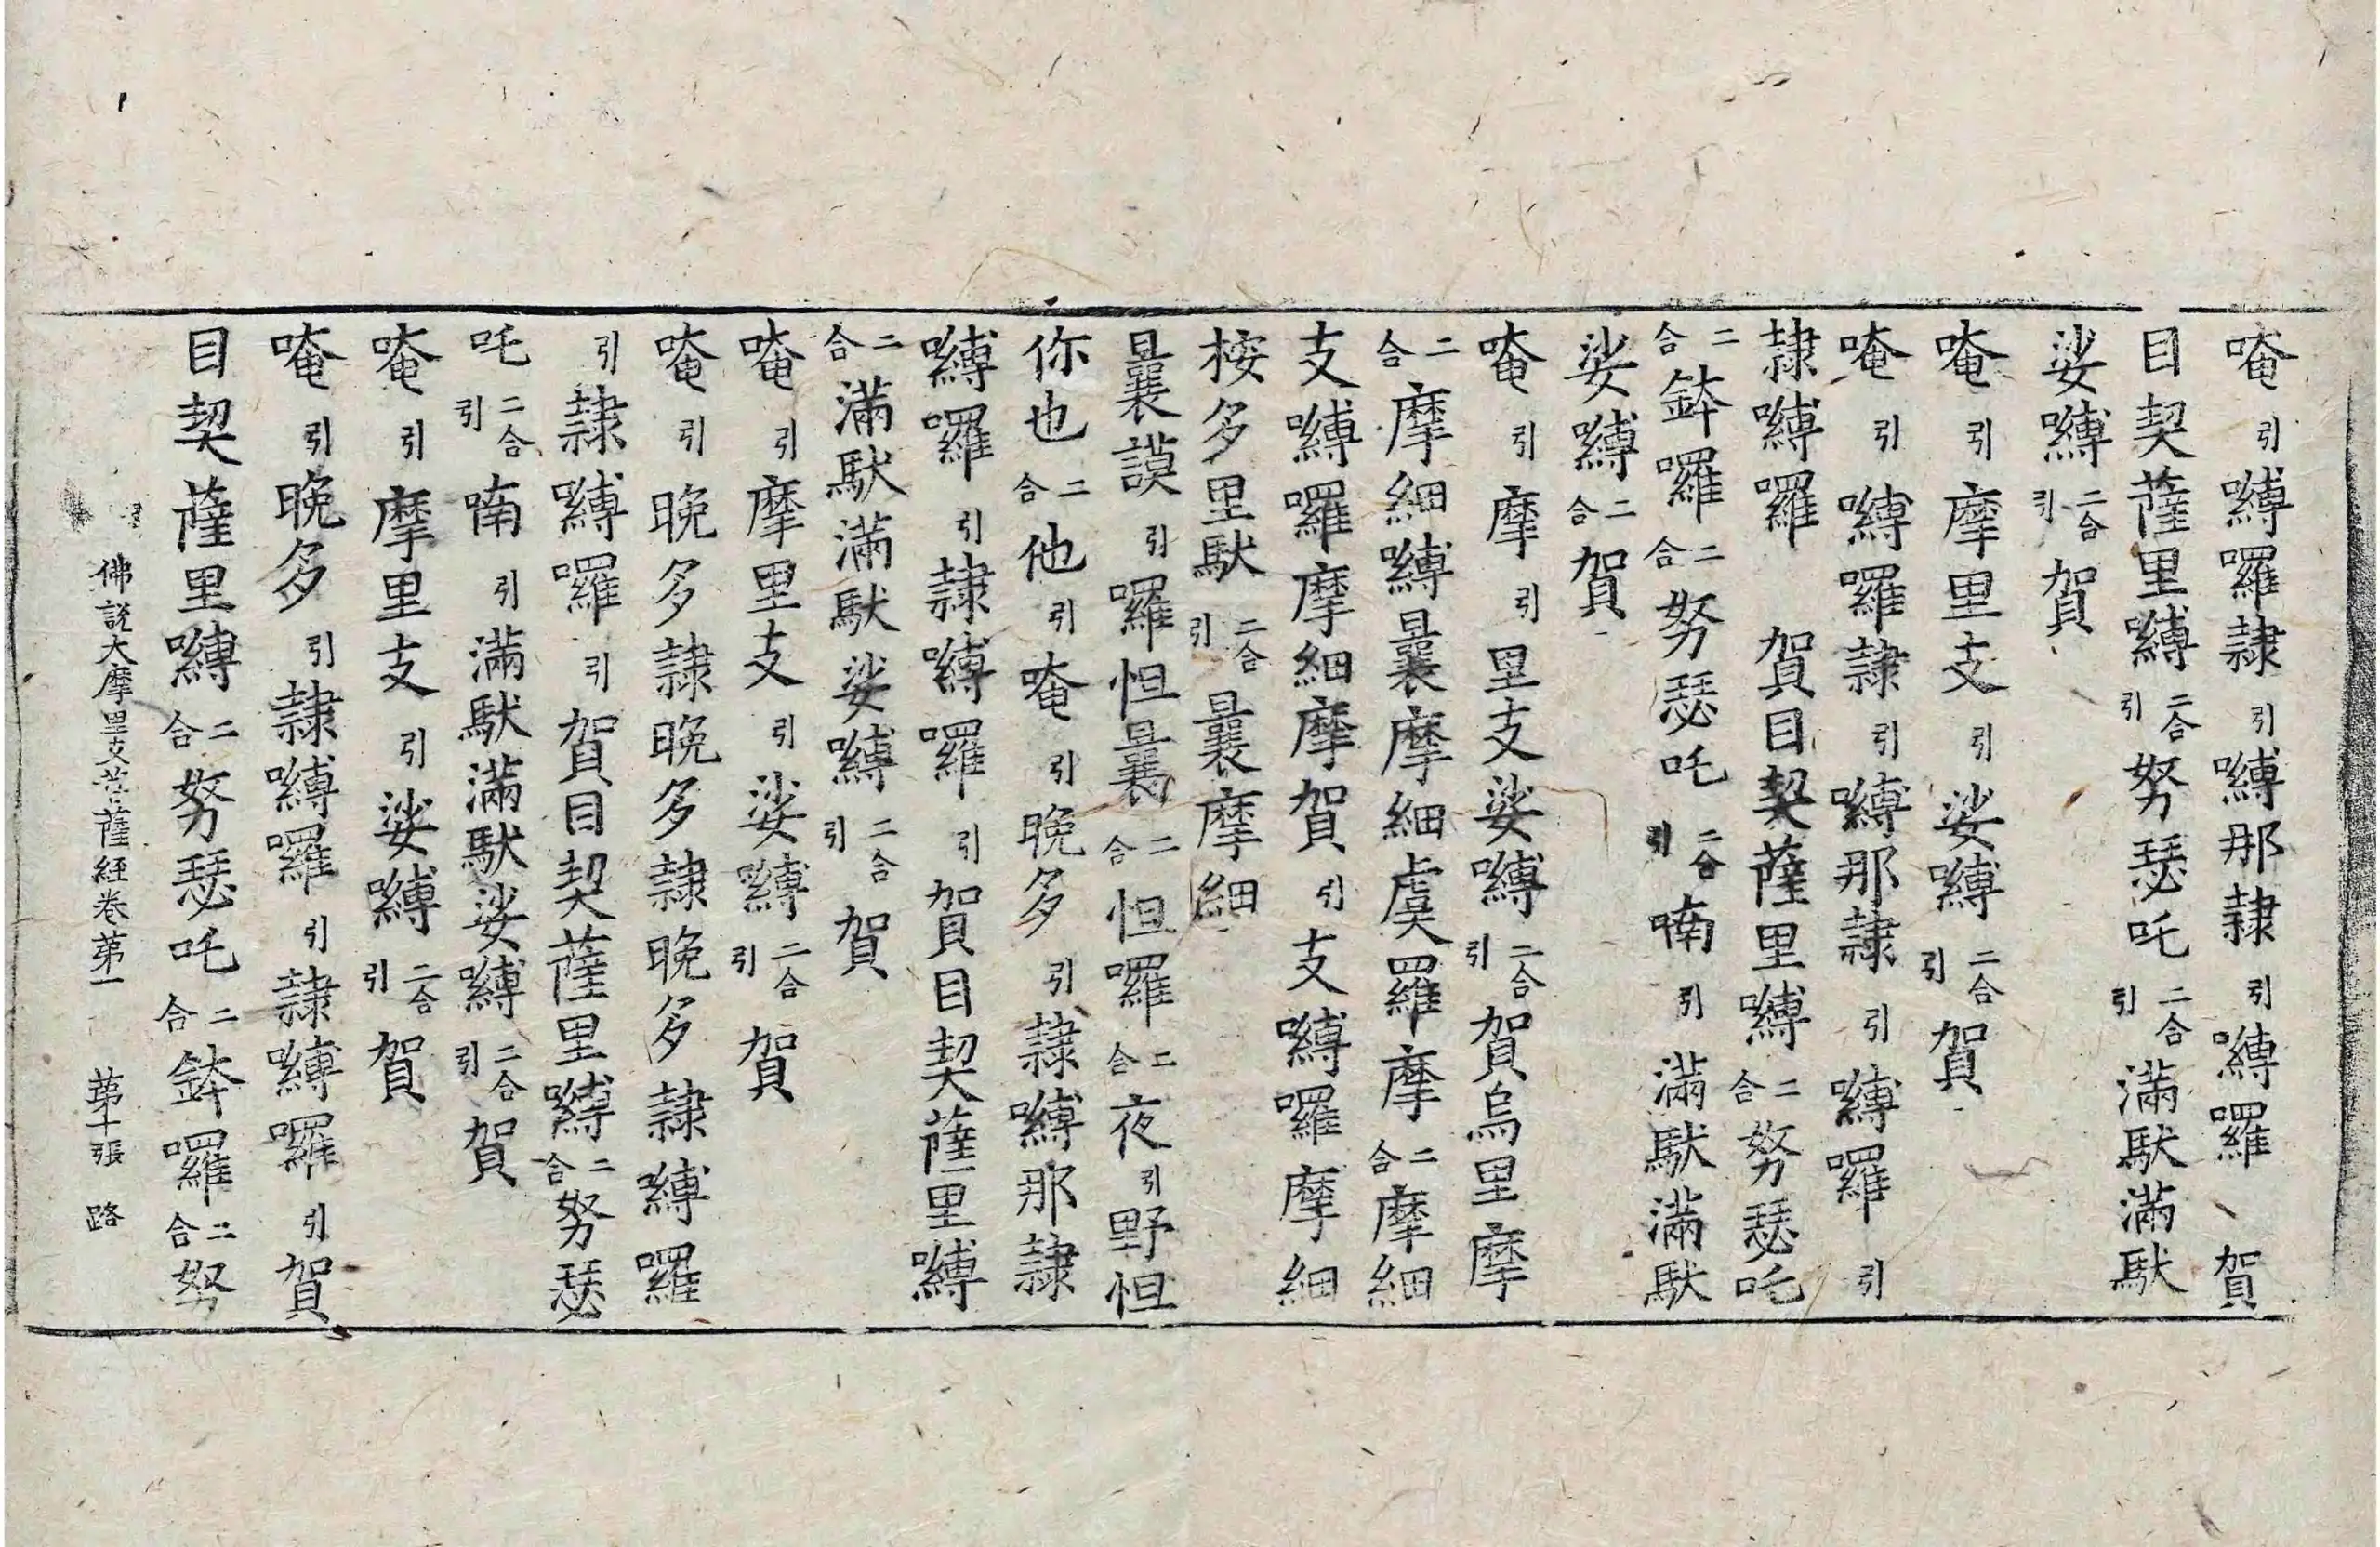 唵引嚩囉隷引嚩那隷引嚩囉 賀
目契薩里嚩二合引努瑟吒二合引滿馱滿馱
娑嚩二合引賀
唵引摩里支引娑嚩二合引賀
唵引嚩囉隷引嚩那隷引嚩囉引
隷嚩囉 賀目契薩里嚩二合努瑟吒
二合鉢囉二合努瑟吒二合引喃引滿馱滿馱
娑嚩二合賀
唵引摩引里支娑嚩二合引賀烏里摩
二合摩細嚩曩摩細虞羅摩二合摩細
支嚩囉摩細摩賀引支嚩囉摩細
桉多里馱二合引曩摩細
曩謨引囉怛曩二合怛囉二合夜引野怛
你也二合他引唵引晚多引隷嚩那隷
嚩囉引隷嚩囉引賀目契薩里嚩
二合滿馱滿馱娑嚩二合引賀
唵引摩里支引娑嚩二合引賀
唵引晚多隷晚多隷晚多隷嚩囉
引隷嚩囉引賀目契薩里嚩二合努瑟
吒二合引喃引滿馱滿馱娑嚩二合引賀
唵引摩里支引娑嚩二合引賀
唵引晚多引隷嚩囉引隷嚩囉引賀
目契薩里嚩二合努瑟吒二合鉢囉二合努
佛說大摩里支菩薩經卷第一 第十張 路